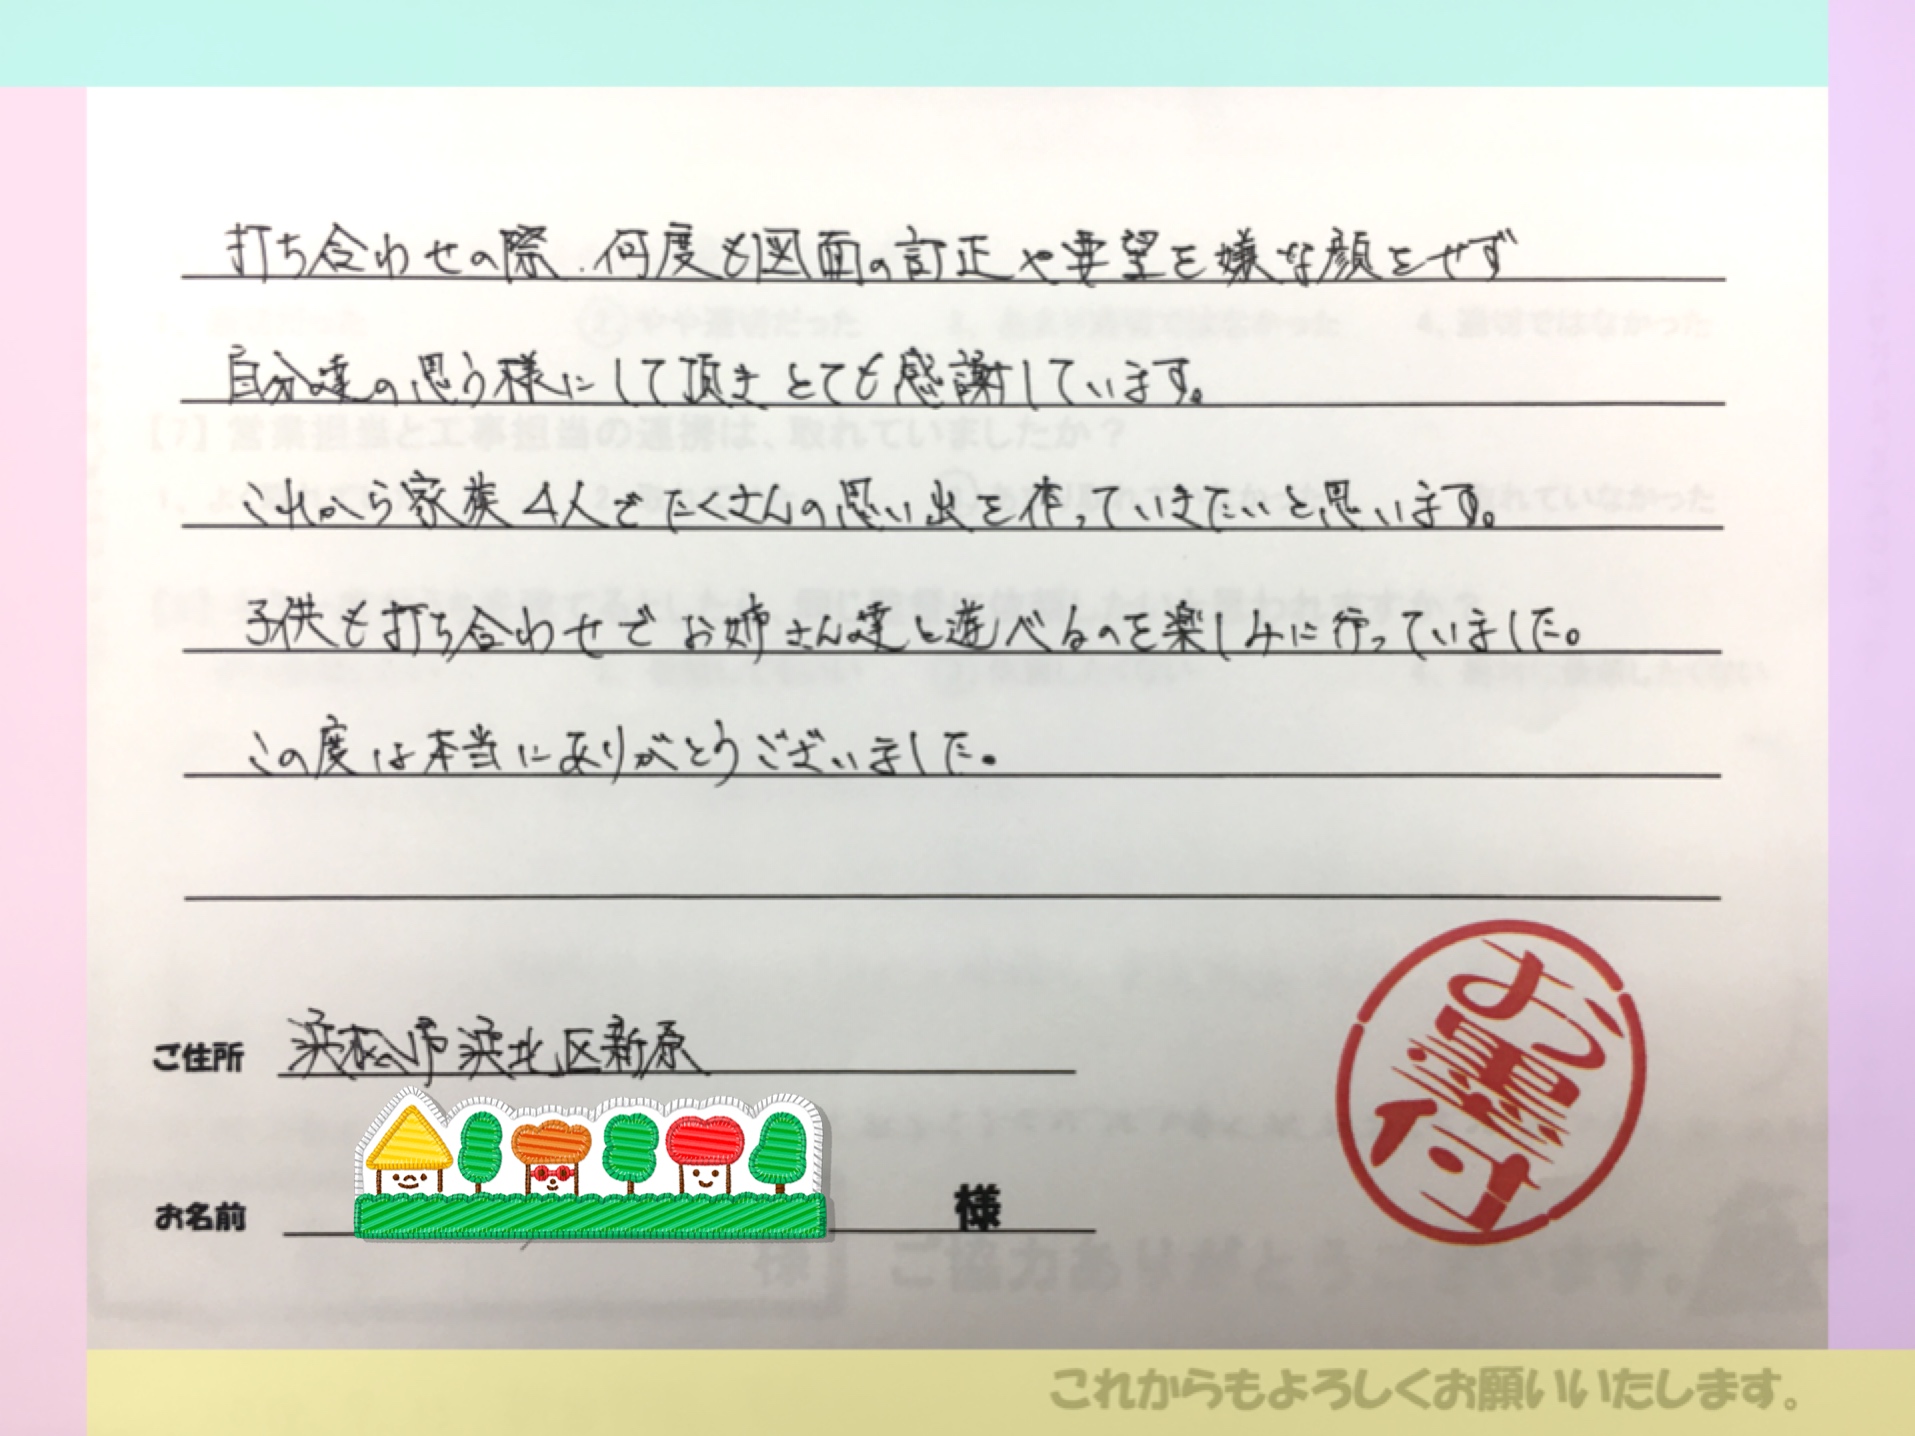 打ち合わせの際、何度も図面の訂正や要望を嫌な顔をせず
自分達の思う様にして頂きとても感謝しています。
これから家族4人でたくさんの思い出を作っていきたいと思います。
子供も打ち合わせでお姉さん達と遊べるのを楽しみに行っていました。
この度は本当にありがとうございました。
ご住所 浜松市浜北区新原
お名前 様
お墨付
【7】営業担当と工事担当の連携は、取れていましたか？
ご協力ありがとうございます。
これからもよろしくお願いいたします。